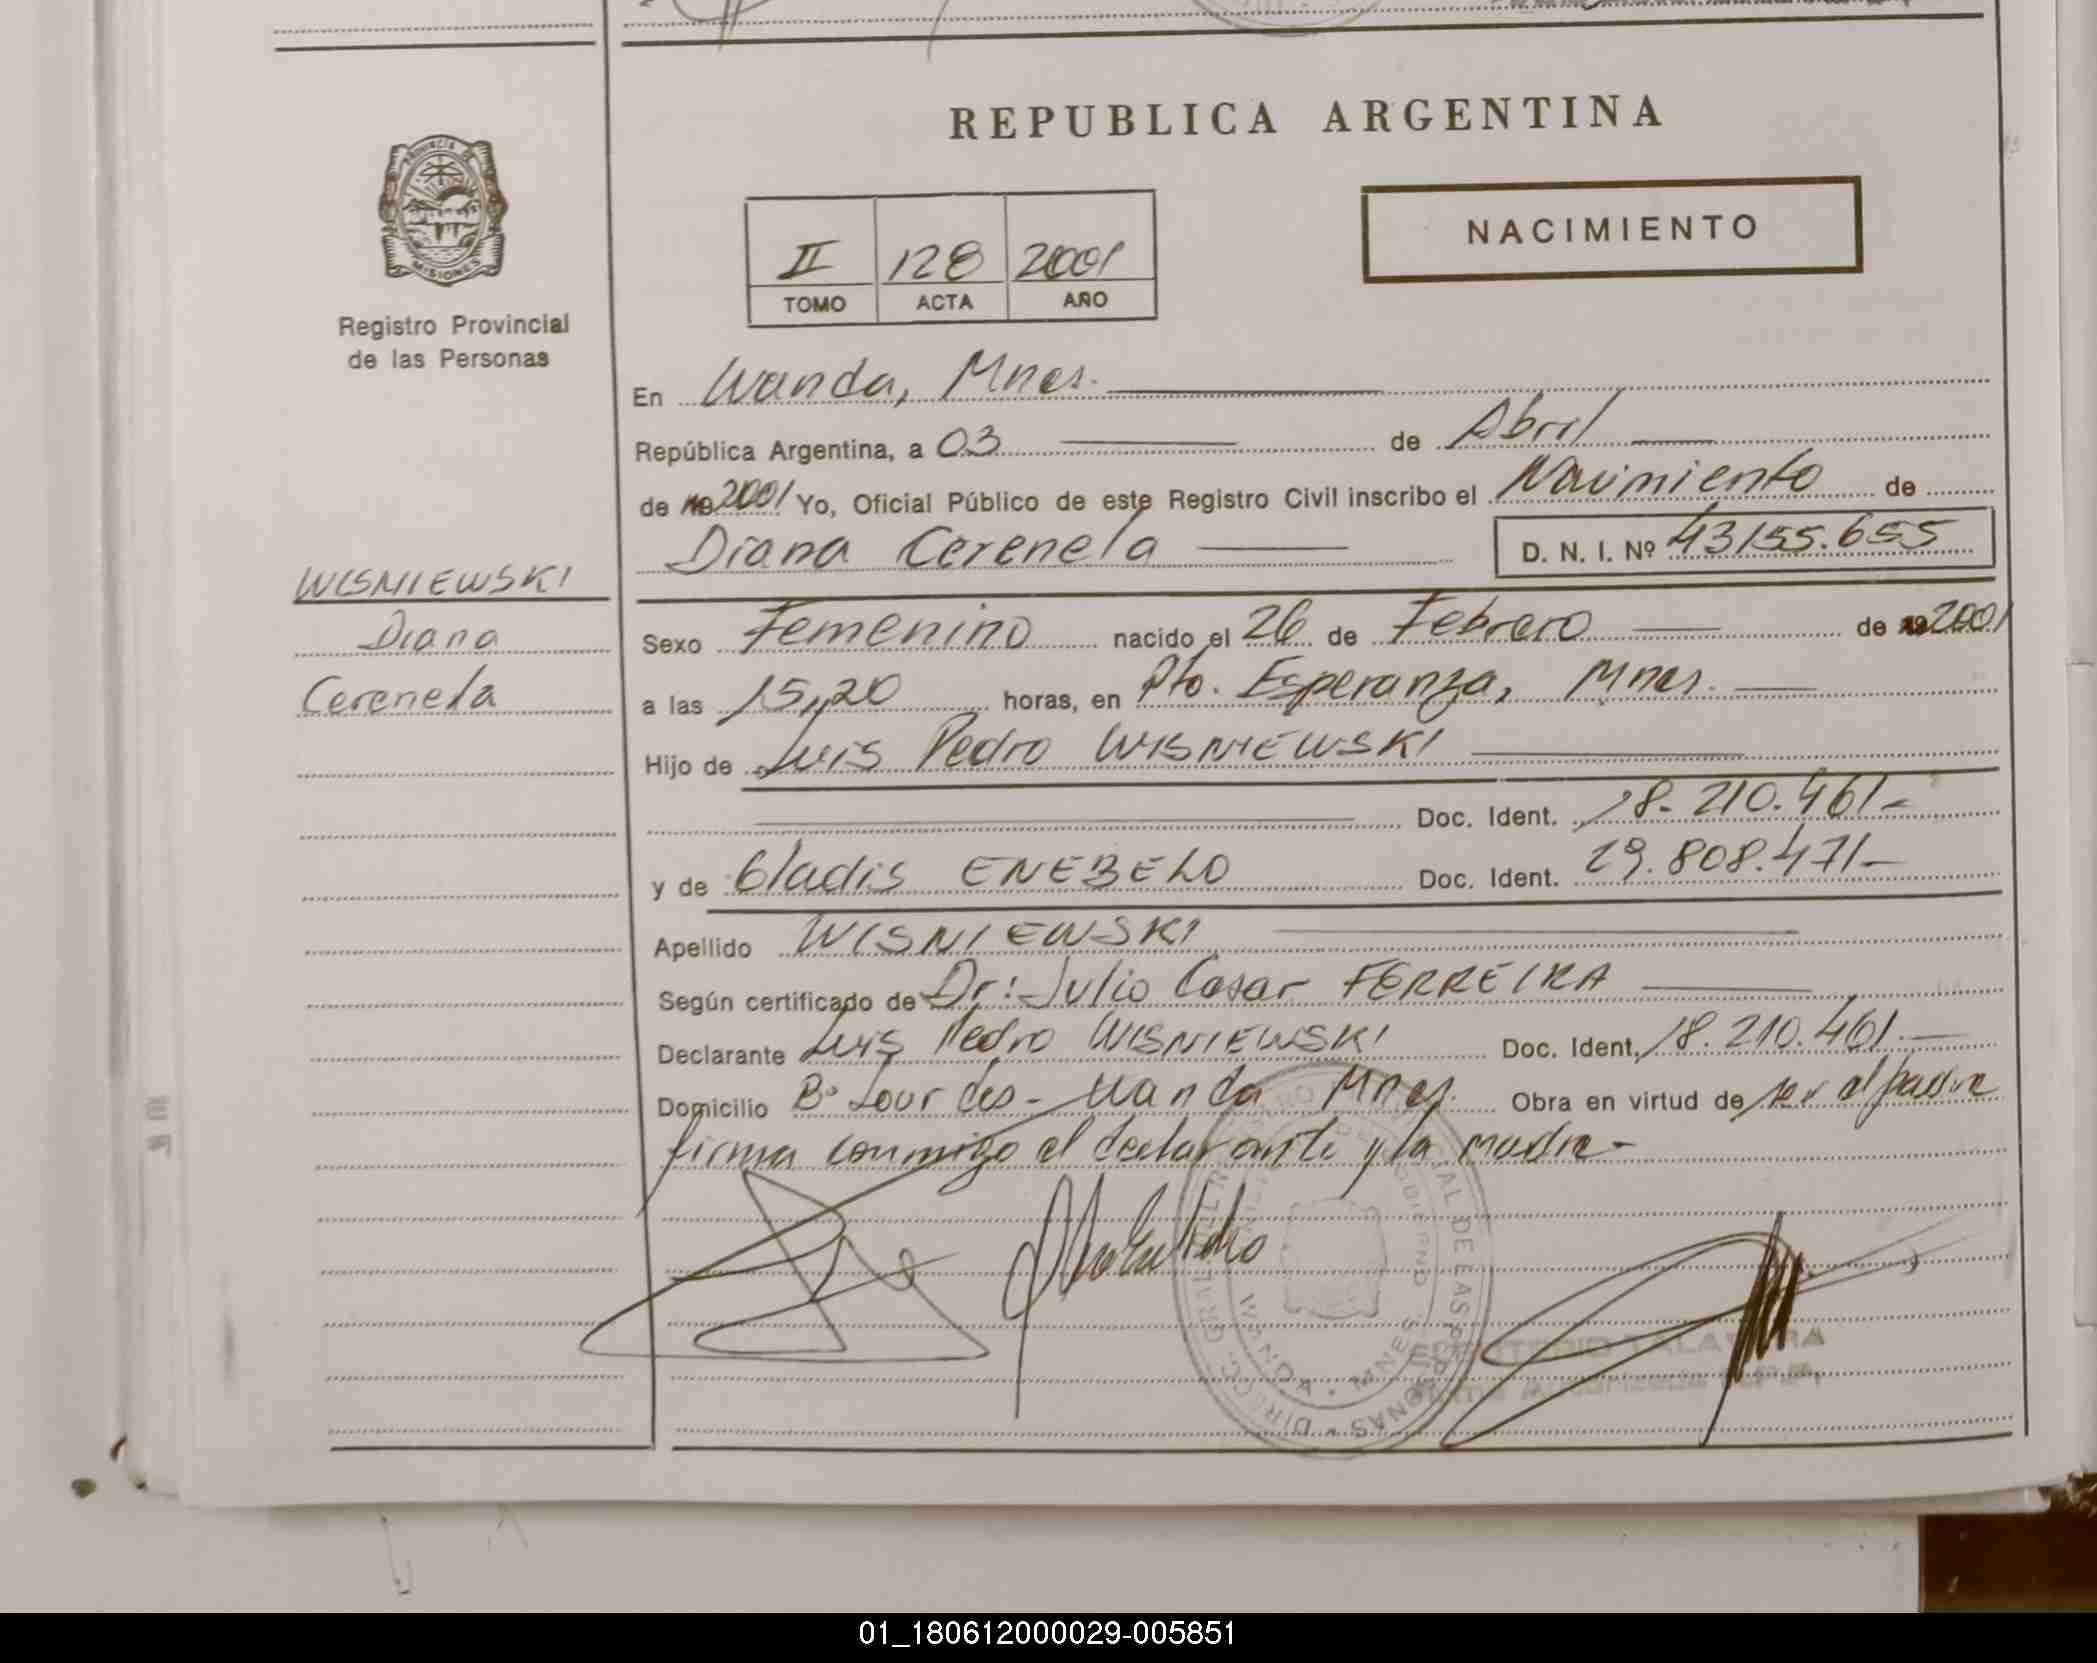 REPUBLICA ARGENTINA
PROVINCIA DE MISIONES
Registro Provincial
de las Personas
NACIMIENTO
II 128 2001
TOMO ACTA AÑO
En Wanda, Mnes.
República Argentina, a 03 de Abril
de 2001 Yo, Oficial Público de este Registro Civil inscribo el Nacimiento de
Diana Cerenela D. N. I. Nº 43155.655
WISNIEWSKI
Diana
Cerenela
Sexo Femenino nacido el 26 de Febrero de 2001
a las 15,20 horas, en Pto. Esperanza, Mnes.
Hijo de Luis Pedro WISNIEWSKI
Doc. Ident. 18.210.461-
y de Gladis ENEBELO Doc. Ident. 29.808.471-
Apellido WISNIEWSKI
Según certificado de Dr: Julio Cesar FERREIRA
Declarante Luis Pedro WISNIEWSKI Doc. Ident. 18.210.461.-
Domicilio Bº Lourdes - Wanda Mnes. Obra en virtud de ser el padre
firma conmigo el declarante y la madre-
WANDA - MNES
01_180612000029-005851